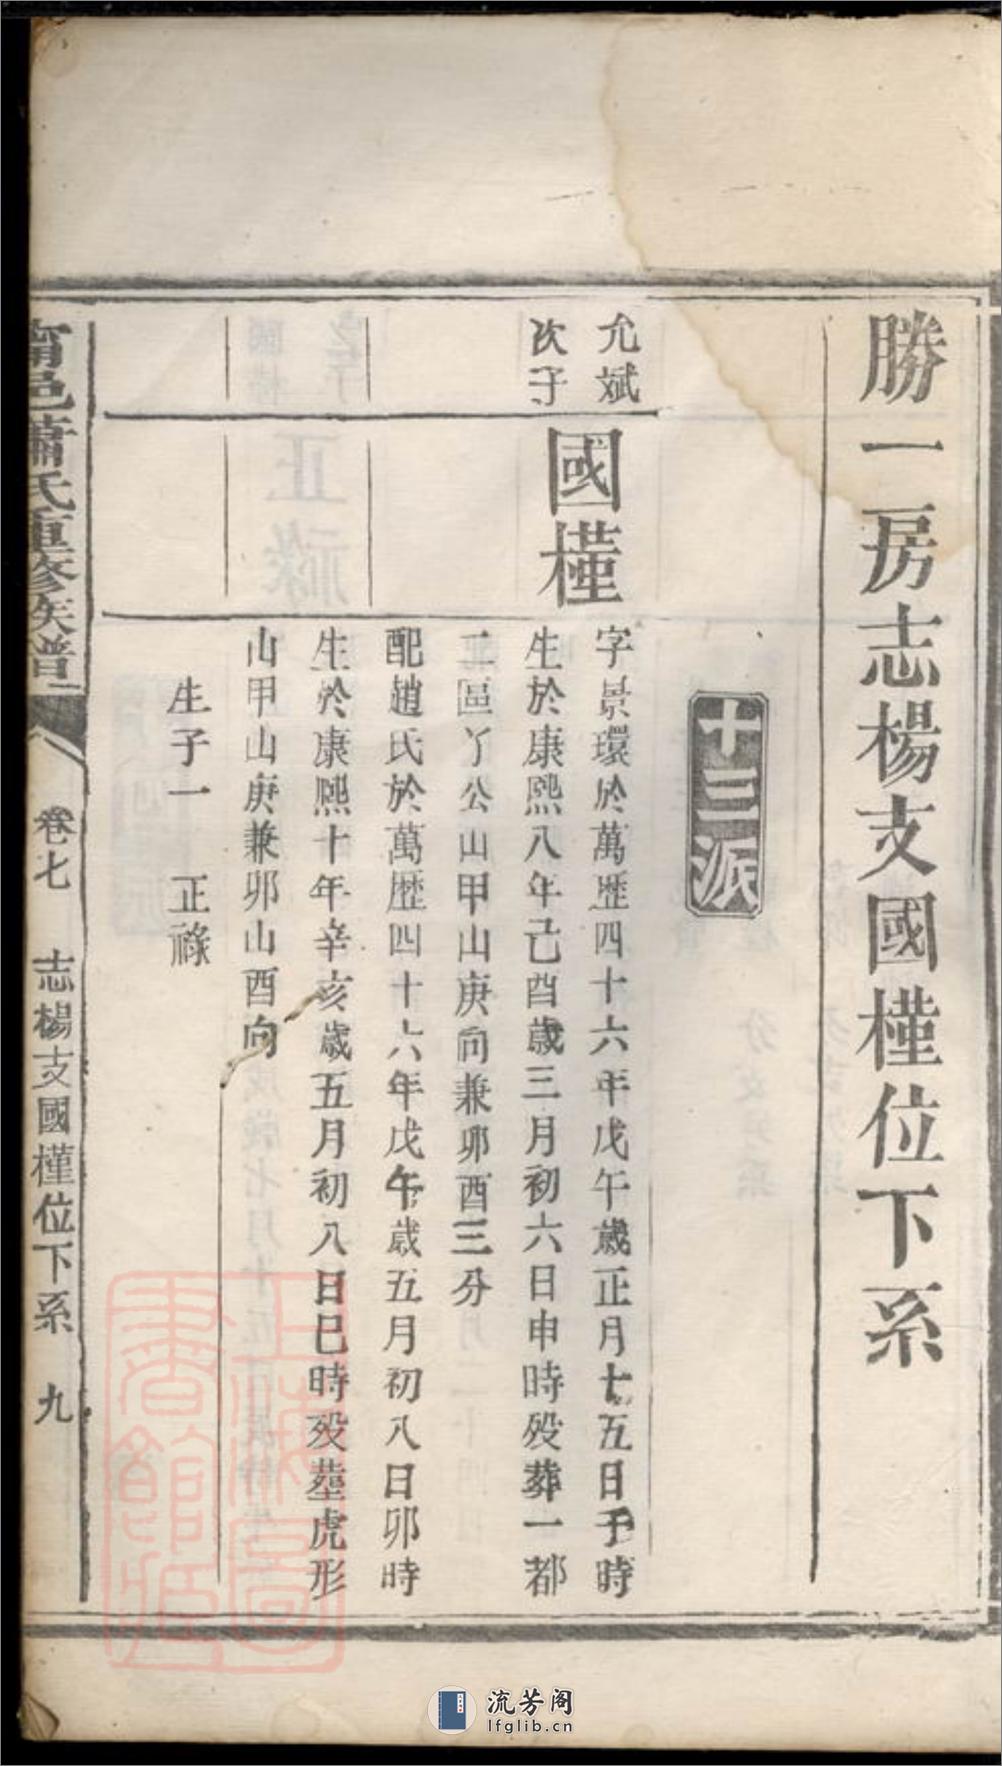 勝一房志楊支國槿位下系
十三派
允斌
次子
國槿
字景環於萬歷四十六年戊午歲正月七五日子時
生於康熙八年己酉歲三月初六日申時殁葬一都
二區丫公山甲山庚向兼卯酉三分
配趙氏於萬歷四十六年戊午歲五月初八日卯時
生於康熙十年辛亥歲五月初八日巳時殁塟虎形
山甲山庚兼卯山酉向
生子一 正祿
甯邑蕭氏重修族譜
卷七 志楊支國槿位下系 九
上海圖書館藏
流芳阁
lfglib.cn